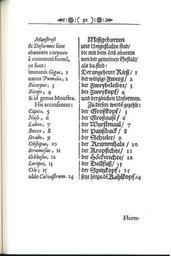 ( 91 )
Monstrosi
& Deformes sunt
abeuntes corpore
à communi formâ,
ut sunt:
immanis Gigas, 1
nanus Pumilio, 2
Bicorpor, 3
Biceps, 4
& id genus Monstra.
His accensentur:
Capito, 5
Naso, 6
Labeo, 7
Bucco, 8
Strabo, 9
Obstipus, 10
Strumosus, 11
Gibbosus, 12
Loripes, 13
Cilo; 15
adde Calvastrum. 14
Mißgeburten
und Ungestalte sind/
die mit dem Leib abarten
von der gemeinen Gestalt/
als da sind:
Der ungeheure Rieß/ 1
der winzige Zwerg/ 2
der Zweyleibichte/ 3
der Zweykopf/ 4
und dergleichen Unformen.
Zu diesen werd gezehlt:
der Großkopf/ 5
der Großnase/ 6
der Wurstmaul/ 7
der Pausback/ 8
der Schieler/ 9
der Krummhals/ 10
der Kropfichte/ 11
der Höckerichte/ 12
der Dollfuß/ 13
der Spitzkopf; 15
setze hinzu den Kahlkopf. 14
Horto-